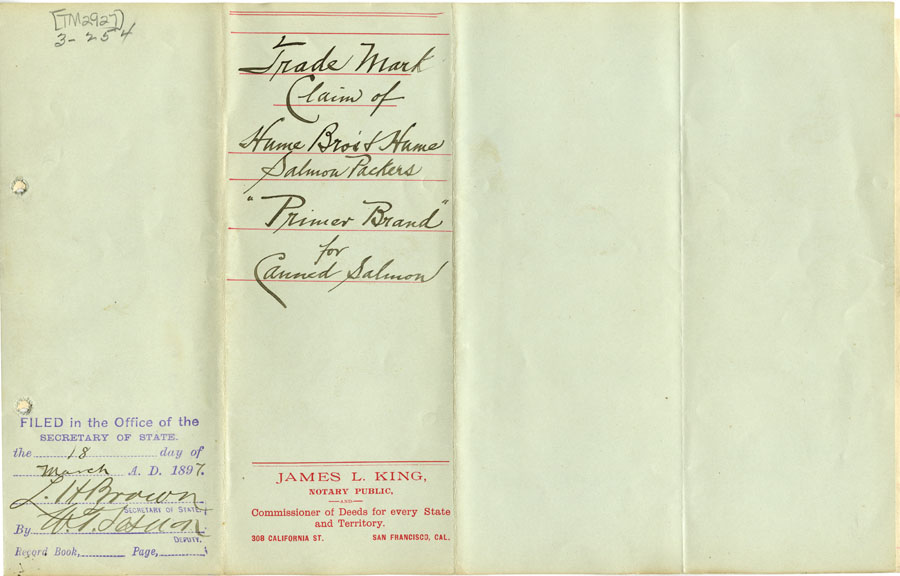 [TM2927]
3-254
Trade Mark
Claim of
Hume Bro's & Hume
Salmon Packers
"Primer Brand"
for
Canned Salmon
FILED in the Office of the
SECRETARY OF STATE.
the 18 day of
March A. D. 1897.
L. H. Brown
SECRETARY OF STATE.
By W. T.
DEPUTY.
Record Book, Page,
JAMES L. KING,
NOTARY PUBLIC,
—AND—
Commissioner of Deeds for every State
and Territory.
308 CALIFORNIA ST. SAN FRANCISCO, CAL.